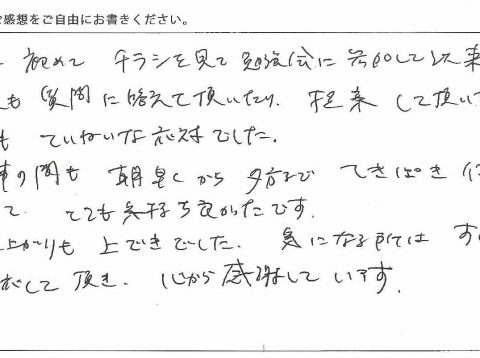 感想をご自由にお書きください。
初めて チラシを見て 勉強会に 参加して以来
も 質問に答えて頂いたり、 して頂い
も ていねいな応対でした。
事の間も 朝早くから 夕方まで てきぱき
て とても気持ち良かったです。
上がりも 上できでした。 気になる所は す
応して 頂き、 心から感謝しています。